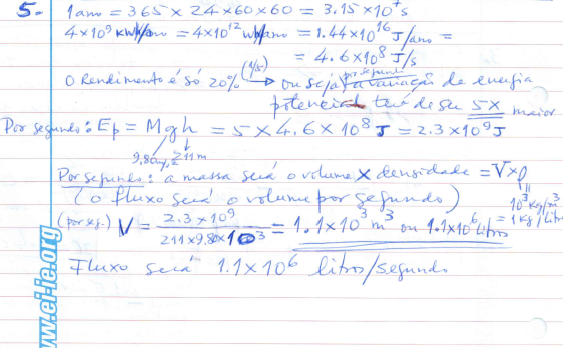 5.- 1 ano = 365 × 24 × 60 × 60 = 3.15 × 10⁷ s
4×10⁹ kWh/ano = 4×10¹² Wh/ano = 1.44×10¹⁶ J/ano =
= 4.6×10⁸ J/s
O Rendimento é só 20% (1/5) → ou seja, por segundo a variação de energia
potencial terá de ser 5X maior
Por segundo: Ep = Mgh = 5 × 4.6 × 10⁸ J = 2.3 × 10⁹ J
211 m
Por segundo: a massa será o volume × densidade = V×ρ
(o fluxo será o volume por segundo) 10³ kg/m³
= 1 kg/litro
(por seg.) V = 2.3 × 10⁹ / 211 × 9.80 × 10³ = 1.1 × 10³ m³ ou 1.1×10⁶ litros
Fluxo será 1.1 × 10⁶ litros/segundo
www.ej-ie.org